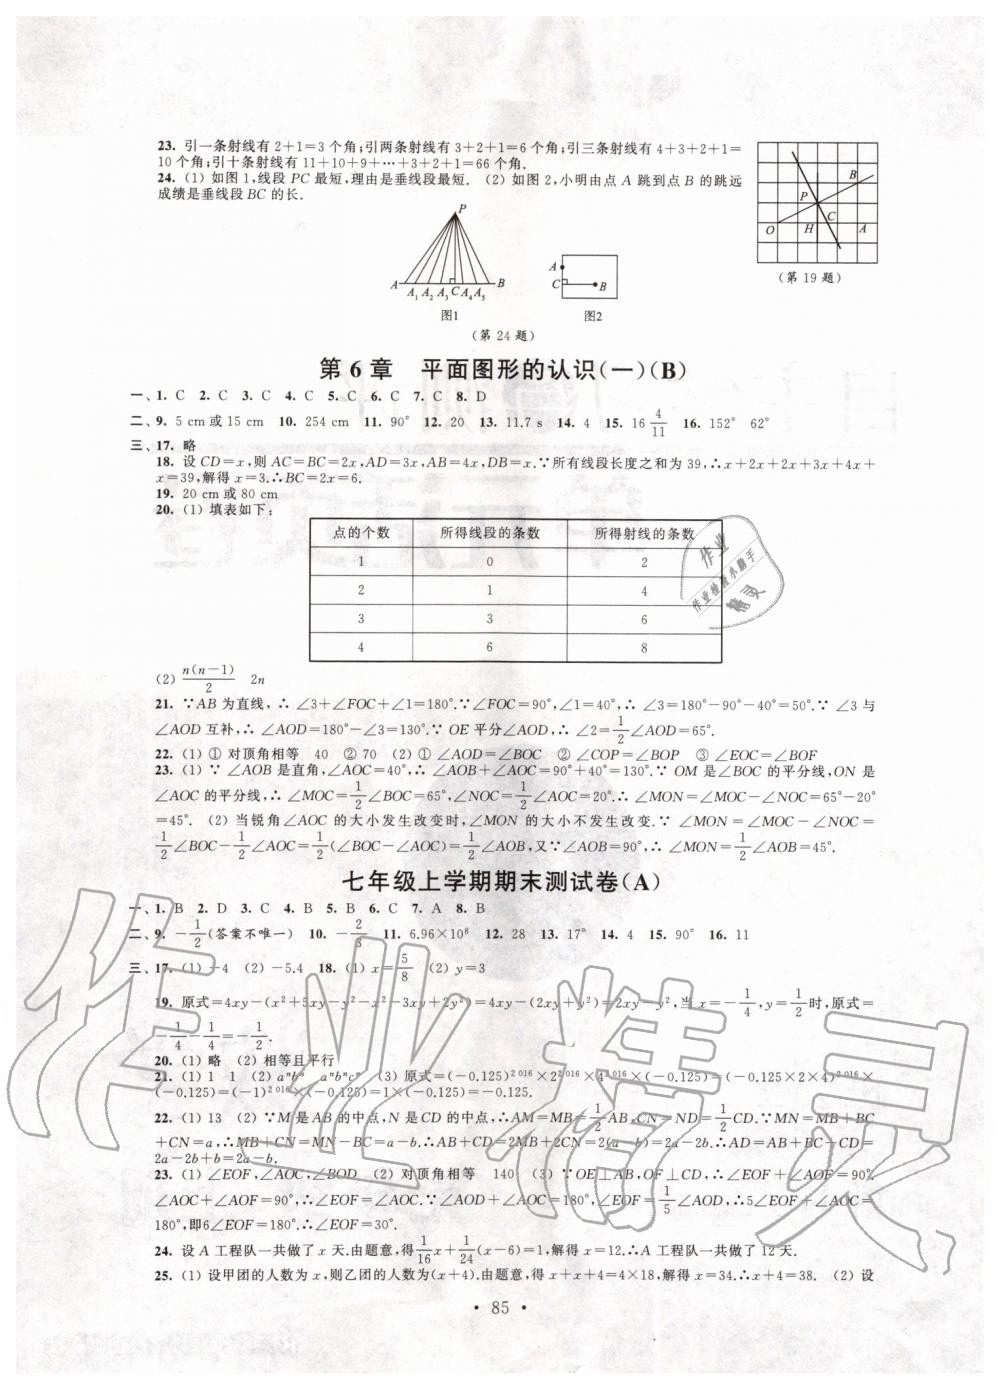 23. 引一条射线有 2+1=3 个角;引两条射线有 3+2+1=6 个角;引三条射线有 4+3+2+1=
10 个角;引十条射线有 11+10+9+…+3+2+1=66 个角.
24. (1) 如图 1,线段 PC 最短,理由是垂线段最短. (2) 如图 2,小明由点 A 跳到点 B 的跳远
成绩是垂线段 BC 的长.
B
P
C
O H A
(第 19 题)
P
A A₁ A₂ A₃ C A₄ A₅ B
图1
A
C B
图2
(第 24 题)
第 6 章 平面图形的认识(一)(B)
一、1. C 2. C 3. C 4. C 5. C 6. C 7. C 8. D
二、9. 5 cm 或 15 cm 10. 254 cm 11. 90° 12. 20 13. 11.7 s 14. 4 15. 16 4/11 16. 152° 62°
三、17. 略
18. 设 CD=x,则 AC=BC=2x,AD=3x,AB=4x,DB=x.∵所有线段长度之和为 39,∴x+2x+2x+3x+4x+
x=39,解得 x=3.∴BC=2x=6.
19. 20 cm 或 80 cm
20. (1) 填表如下:
点的个数 所得线段的条数 所得射线的条数
1 0 2
2 1 4
3 3 6
4 6 8
(2) n(n−1)/2 2n
21. ∵AB 为直线,∴ ∠3+∠FOC+∠1=180°.∵∠FOC=90°,∠1=40°,∴ ∠3=180°−90°−40°=50°.∵ ∠3 与
∠AOD 互补,∴ ∠AOD=180°−∠3=130°.∵ OE 平分∠AOD,∴ ∠2=1/2∠AOD=65°.
22. (1) ① 对顶角相等 40 ② 70 (2) ① ∠AOD=∠BOC ② ∠COP=∠BOP ③ ∠EOC=∠BOF
23. (1) ∵ ∠AOB 是直角,∠AOC=40°,∴ ∠AOB+∠AOC=90°+40°=130°.∵ OM 是∠BOC 的平分线,ON 是
∠AOC 的平分线,∴ ∠MOC=1/2∠BOC=65°,∠NOC=1/2∠AOC=20°.∴ ∠MON=∠MOC−∠NOC=65°−20°
=45°. (2) 当锐角∠AOC 的大小发生改变时,∠MON 的大小不发生改变.∵ ∠MON=∠MOC−∠NOC=
1/2∠BOC−1/2∠AOC=1/2(∠BOC−∠AOC)=1/2∠AOB,又∵∠AOB=90°,∴ ∠MON=1/2∠AOB=45°.
七年级上学期期末测试卷(A)
一、1. B 2. D 3. C 4. B 5. B 6. C 7. A 8. B
二、9. −1/2(答案不唯一) 10. −2/3 11. 6.96×10⁸ 12. 28 13. 17° 14. 4 15. 90° 16. 11
三、17. (1) −4 (2) −5.4 18. (1) x=5/8 (2) y=3
19. 原式=4xy−(x²+5xy−y²−x²−3xy+2y²)=4xy−(2xy+y²)=2xy−y²,当 x=−1/4,y=1/2时,原式=
−1/4−1/4=−1/2.
20. (1) 略 (2) 相等且平行
21. (1) 1 1 (2) aⁿbⁿ aⁿbⁿcⁿ (3) 原式=(−0.125)²⁰¹⁶×2²⁰¹⁶×4²⁰¹⁶×(−0.125)=(−0.125×2×4)²⁰¹⁶×
(−0.125)=(−1)²⁰¹⁶×(−0.125)=1×(−0.125)=−0.125.
22. (1) 13 (2) ∵M 是 AB 的中点,N 是 CD 的中点,∴AM=MB=1/2AB,CN=ND=1/2CD.∵MN=MB+BC
+CN=a,∴MB+CN=MN−BC=a−b.∴AB+CD=2MB+2CN=2(a−b)=2a−2b.∴AD=AB+BC+CD=
2a−2b+b=2a−b.
23. (1) ∠EOF,∠AOC,∠BOD (2) 对顶角相等 140 (3) ∵OE⊥AB,OF⊥CD,∴∠EOF+∠AOF=90°.
∠AOC+∠AOF=90°,∴∠EOF=∠AOC.∵∠AOD+∠AOC=180°,∠EOF=1/5∠AOD,∴5∠EOF+∠AOC=
180°,即6∠EOF=180°.∴∠EOF=30°.
24. 设 A 工程队一共做了 x 天.由题意,得1/16x+1/24(x−6)=1,解得 x=12.∴A 工程队一共做了 12 天.
25. (1) 设甲团的人数为 x,则乙团的人数为(x+4).由题意,得 x+x+4=4×18,解得 x=34.∴x+4=38. (2) 设
• 85 •
作业
作业检查小助手
精灵
作业精灵